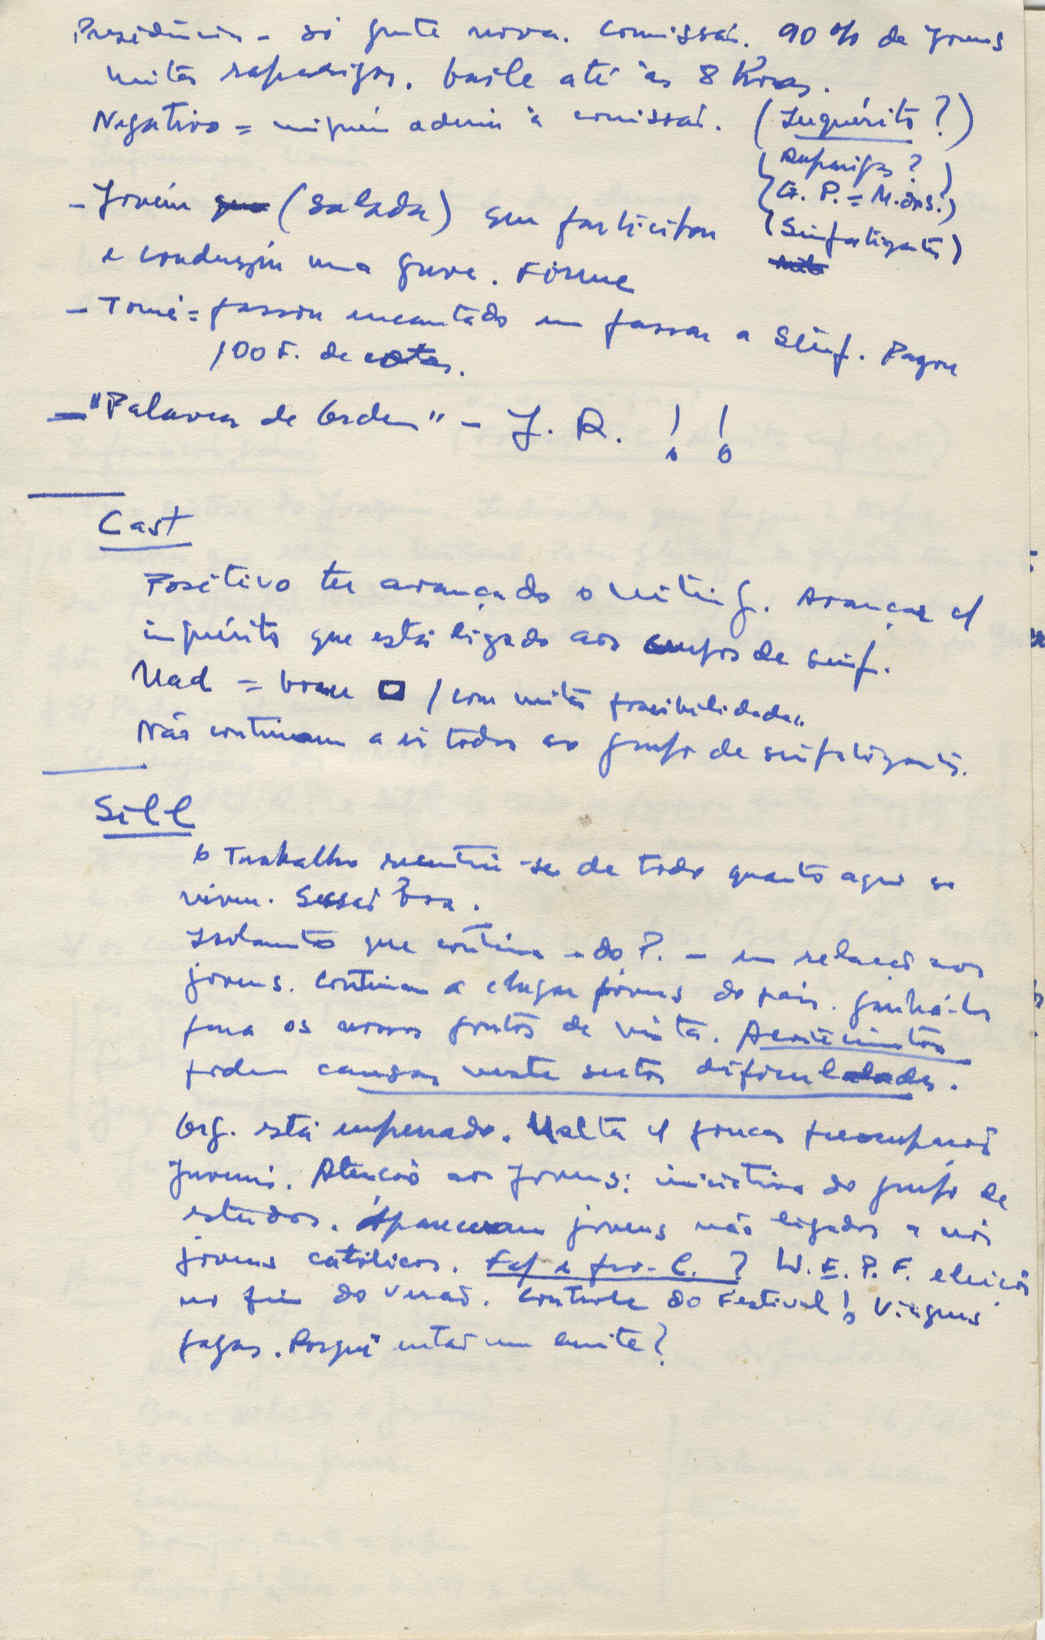 Presidência - só gente nova. Comissão. 90% de jovens
muitas raparigas. baile até às 8 horas.
Negativo = ninguém aderiu à comissão. (Inquérito?)
(Raparigas?)
(G. P. = M. ons.)
(Simpatizantes)
- Jovem (Salada) que participou
e conduziu uma greve. Firme
- Tomé = passou encantado em passar a Simp. Pagou
100 F. de cotas.
- "Palavra de Ordem" - J. R. !!
Cast
Positivo ter avançado o Miting. Avançar c/
inquérito que está ligado aos grupos de simp.
Nad = boau / com muitas possibilidades
Não continuam a ir todos ao grupo de simpatizantes.
Sill
O Trabalho ressentiu-se de todo quanto aqui se
viveu. Sessão boa.
Isolamento que continua - do P. - em relação aos
jovens. Continuam a chegar jovens do país. ganhá-los
para os nossos pontos de vista. Acontecimentos
podem causar neste sector dificuldades.
Org. está emperrado. Malta c/ poucas preocupações
Juvenis. Atenção aos jovens: iniciativa do grupo de
estudos. Apareceram jovens não ligados a nós
jovens católicos. ? W. E. P. F. eleições
no fim do verão. Controle do Festival! Viagens
pagas. Porquê